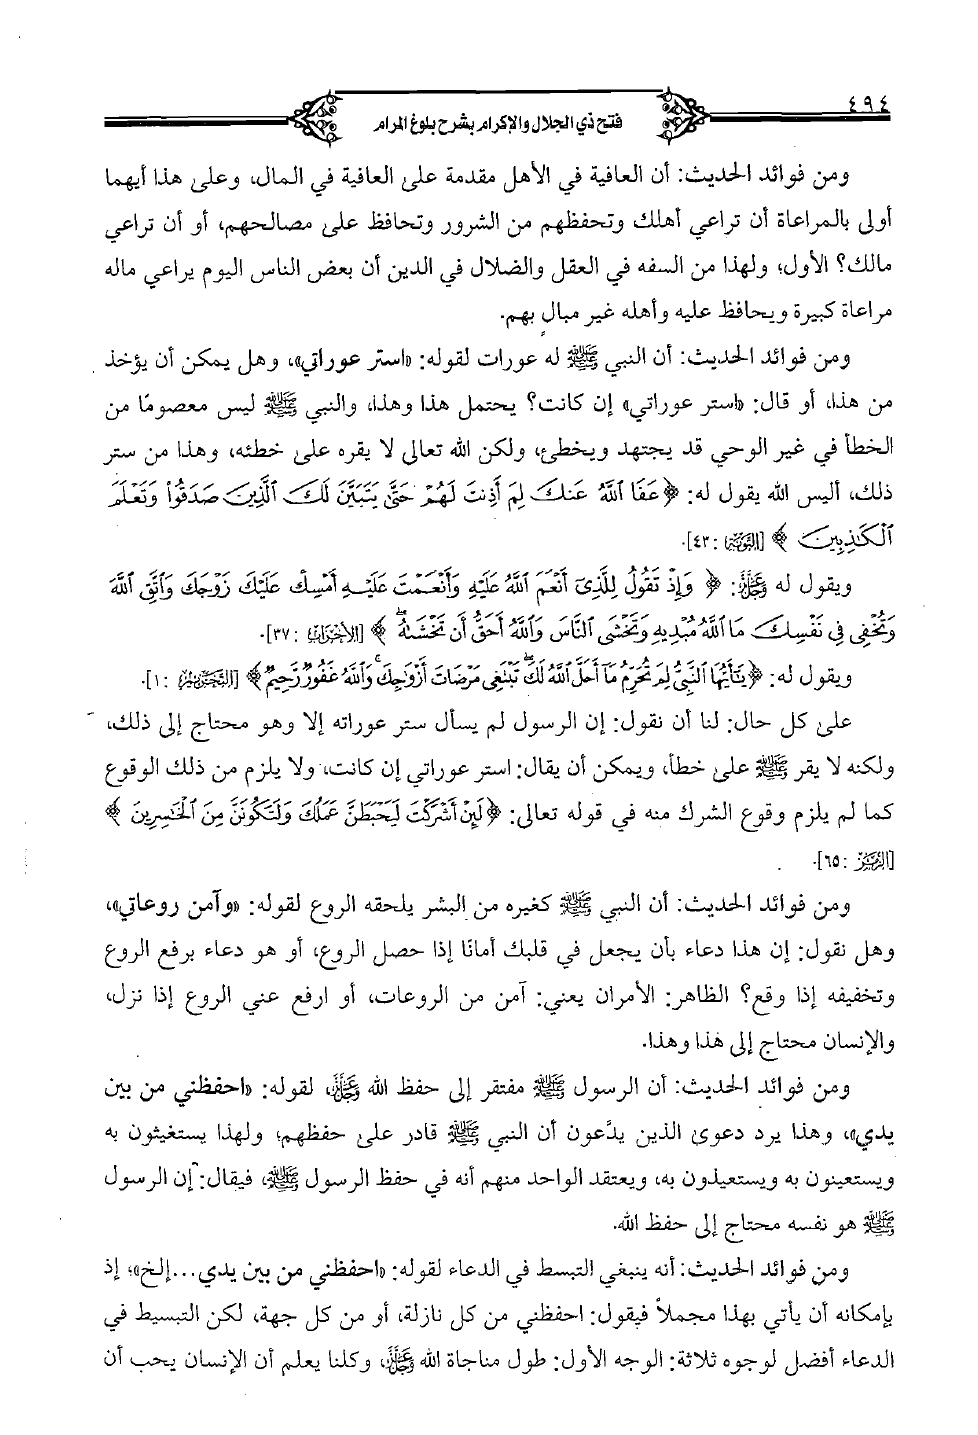 ٤٩٤
فتح ذي الجلال والإكرام بشرح بلوغ المرام
ومن فوائد الحديث: أن العافية في الأهل مقدمة على العافية في المال، وعلى هذا أيهما
أولى بالمراعاة أن تراعي أهلك وتحفظهم من الشرور وتحافظ على مصالحهم، أو أن تراعي
مالك؟ الأول؛ ولهذا من السفه في العقل والضلال في الدين أن بعض الناس اليوم يراعي ماله
مراعاة كبيرة ويحافظ عليه وأهله غير مبالٍ بهم.
ومن فوائد الحديث: أن النبي ﷺ له عورات لقوله: «استر عوراتي»، وهل يمكن أن يؤخذ
من هذا، أو قال: «استر عوراتي» إن كانت؟ يحتمل هذا وهذا، والنبي ﷺ ليس معصومًا من
الخطأ في غير الوحي قد يجتهد ويخطئ، ولكن الله تعالى لا يقره على خطئه، وهذا من ستر
ذلك، أليس الله يقول له: ﴿عَفَا ٱللَّهُ عَنكَ لِمَ أَذِنتَ لَهُمْ حَتَّىٰ يَتَبَيَّنَ لَكَ ٱلَّذِينَ صَدَقُوا۟ وَتَعْلَمَ
ٱلْكَـٰذِبِينَ﴾ [التوبة: ٤٣].
ويقول له ﷻ: ﴿وَإِذْ تَقُولُ لِلَّذِىٓ أَنْعَمَ ٱللَّهُ عَلَيْهِ وَأَنْعَمْتَ عَلَيْهِ أَمْسِكْ عَلَيْكَ زَوْجَكَ وَٱتَّقِ ٱللَّهَ
وَتُخْفِى فِى نَفْسِكَ مَا ٱللَّهُ مُبْدِيهِ وَتَخْشَى ٱلنَّاسَ وَٱللَّهُ أَحَقُّ أَن تَخْشَىٰهُ ۖ﴾ [الأحزاب: ٣٧].
ويقول له: ﴿يَـٰٓأَيُّهَا ٱلنَّبِىُّ لِمَ تُحَرِّمُ مَآ أَحَلَّ ٱللَّهُ لَكَ ۖ تَبْتَغِى مَرْضَاتَ أَزْوَٰجِكَ ۚ وَٱللَّهُ غَفُورٌ رَّحِيمٌ﴾ [التحريم: ١].
على كل حال: لنا أن نقول: إن الرسول لم يسأل ستر عوراته إلا وهو محتاج إلى ذلك،
ولكنه لا يقر ﷺ على خطأ، ويمكن أن يقال: استر عوراتي إن كانت، ولا يلزم من ذلك الوقوع
كما لم يلزم وقوع الشرك منه في قوله تعالى: ﴿لَئِنْ أَشْرَكْتَ لَيَحْبَطَنَّ عَمَلُكَ وَلَتَكُونَنَّ مِنَ ٱلْخَـٰسِرِينَ﴾
[الزمر: ٦٥].
ومن فوائد الحديث: أن النبي ﷺ كغيره من البشر يلحقه الروع لقوله: «وآمن روعاتي»،
وهل نقول: إن هذا دعاء بأن يجعل في قلبك أمانًا إذا حصل الروع، أو هو دعاء برفع الروع
وتخفيفه إذا وقع؟ الظاهر: الأمران يعني: آمن من الروعات، أو ارفع عني الروع إذا نزل،
والإنسان محتاج إلى هذا وهذا.
ومن فوائد الحديث: أن الرسول ﷺ مفتقر إلى حفظ الله ﷻ، لقوله: «احفظني من بين
يدي»، وهذا يرد دعوى الذين يدَّعون أن النبي ﷺ قادر على حفظهم؛ ولهذا يستغيثون به
ويستعينون به ويستعيذون به، ويعتقد الواحد منهم أنه في حفظ الرسول ﷺ، فيقال: إن الرسول
ﷺ هو نفسه محتاج إلى حفظ الله.
ومن فوائد الحديث: أنه ينبغي التبسط في الدعاء لقوله: «احفظني من بين يدي...إلخ»؛ إذ
بإمكانه أن يأتي بهذا مجملاً فيقول: احفظني من كل نازلة، أو من كل جهة، لكن التبسيط في
الدعاء أفضل لوجوه ثلاثة: الوجه الأول: طول مناجاة الله ﷻ، وكلنا يعلم أن الإنسان يحب أن